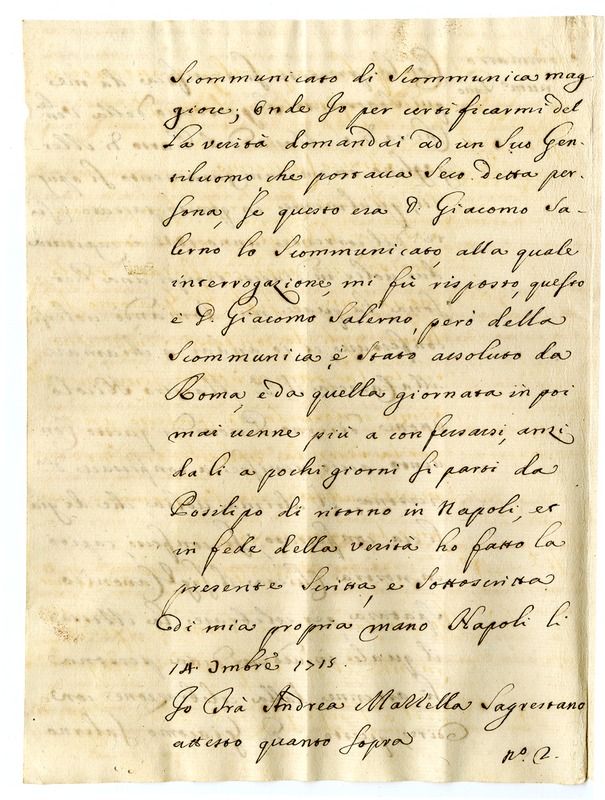 Scommunicato di Scommunica mag
giore; Onde Io per certificarmi del
la verità domandai ad un Suo Gen-
tiluomo, che portaua Seco detta per-
sona, Se questo era D. Giacomo Sa-
lerno lo Scommunicato, alla quale
interrogazione, mi fù risposto, questo
è D. Giacomo Salerno, però della
Scommunica, è Stato assoluto da
Roma, e da quella giornata in poi
mai uenne più a confessarsi, anzi
da li a pochi giorni si partì da
Posilipo di ritorno in Napoli, et
in fede della verità ho fatto la
presente Scritta, e Sottoscritta
Di mia propria mano Napoli li
14. Xmbre 1715.
Io Frà Andrea Sagrestano
attesto quanto sopra
n.º 2.